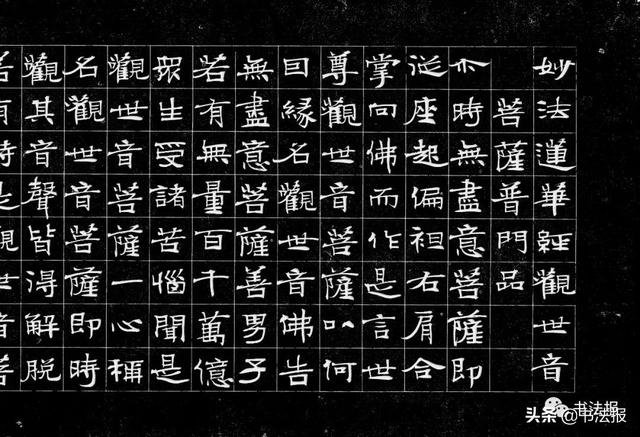 妙法蓮華經觀世音
菩薩普門品
尒時無盡意菩薩即
從座起偏袒右肩合
掌向佛而作是言世
尊觀世音菩薩以何
因緣名觀世音佛告
無盡意菩薩善男子
若有無量百千萬億
眾生受諸苦惱聞是
觀世音菩薩一心稱
名觀世音菩薩即時
觀其音聲皆得解脫
若有持是觀世音菩
书法报
头条@书法报